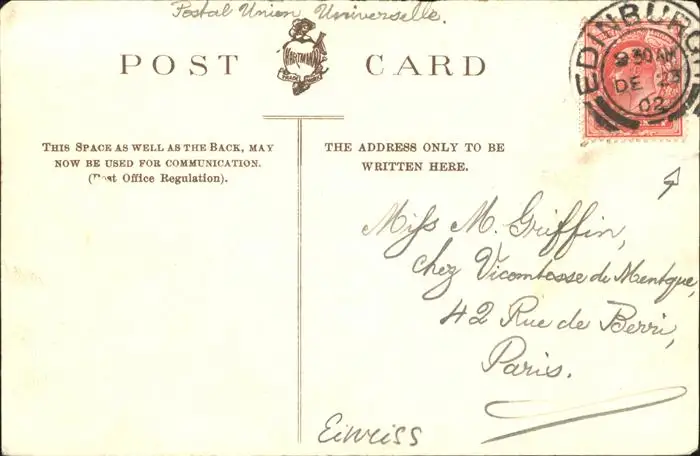 Postal Union Universelle.
POST CARD
HARTMANN
TRADE MARK
EDINBURGH
9 30 AM
DE 23
02
THIS SPACE AS WELL AS THE BACK, MAY
NOW BE USED FOR COMMUNICATION.
(Post Office Regulation).
THE ADDRESS ONLY TO BE
WRITTEN HERE.
Miss M. Griffin,
chez Vicomtesse de Mentque,
42 Rue de Berri,
Paris.
Eiweiss